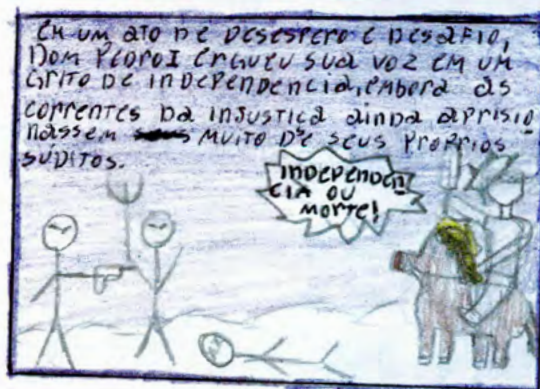 EM UM ATO DE DESESPERO E DESAFIO,
DOM PEDRO I ERGUEU SUA VOZ EM UM
GRITO DE INDEPENDENCIA, EMBORA AS
CORRENTES DA INJUSTIÇA AINDA APRISIO
NASSEM MUITO DE SEUS PROPRIOS
SÚDITOS.
INDEPENDEN
CIA OU
MORTE!